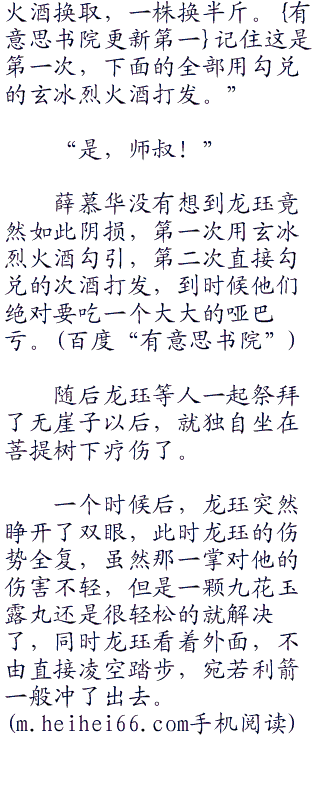 火酒换取，一株换半斤。{有
意思书院更新第一}记住这是
第一次，下面的全部用勾兑
的玄冰烈火酒打发。”
“是，师叔！”
薛慕华没有想到龙珏竟
然如此阴损，第一次用玄冰
烈火酒勾引，第二次直接勾
兑的次酒打发，到时候他们
绝对要吃一个大大的哑巴
亏。(百度“有意思书院”)
随后龙珏等人一起祭拜
了无崖子以后，就独自坐在
菩提树下疗伤了。
一个时候后，龙珏突然
睁开了双眼，此时龙珏的伤
势全复，虽然那一掌对他的
伤害不轻，但是一颗九花玉
露丸还是很轻松的就解决
了，同时龙珏看着外面，不
由直接凌空踏步，宛若利箭
一般冲了出去。
(m.heihei66.com手机阅读)